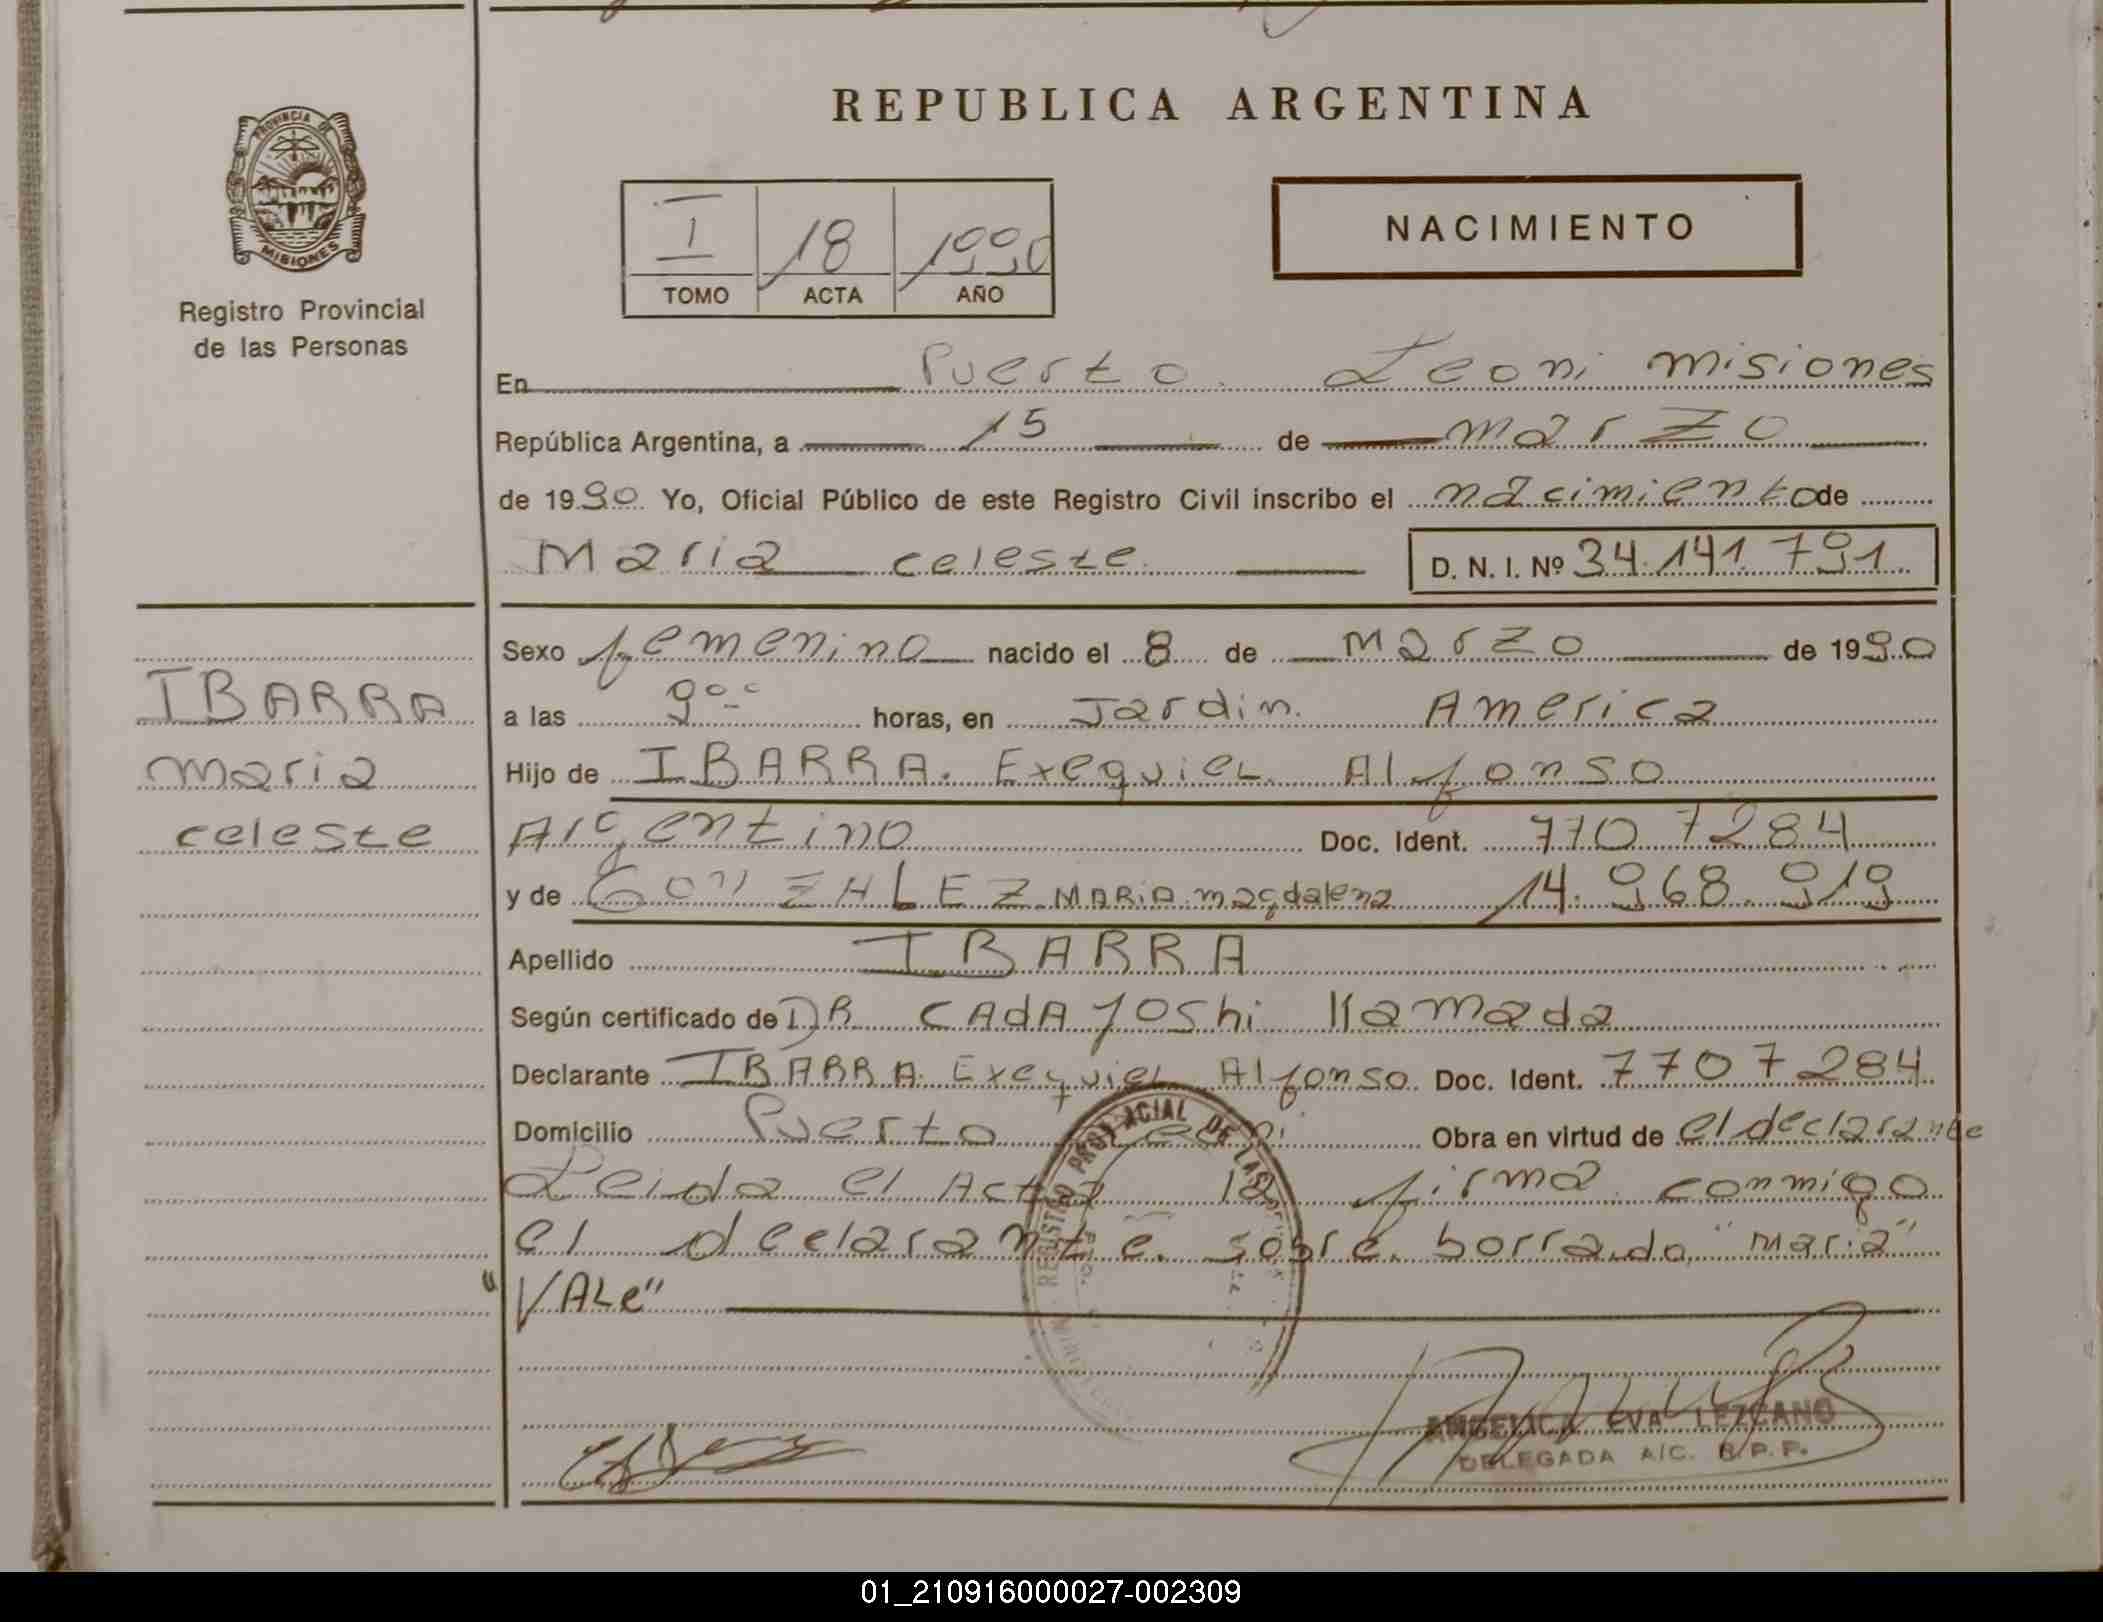 REPUBLICA ARGENTINA
PROVINCIA DE MISIONES
Registro Provincial
de las Personas
I 18 1990
TOMO ACTA AÑO
NACIMIENTO
En Puerto Leoni misiones
República Argentina, a 15 de marzo
de 1990 Yo, Oficial Público de este Registro Civil inscribo el nacimiento de
Maria celeste D. N. I. Nº 34.141.791
IBARRA
maria
celeste
Sexo femenino nacido el 8 de marzo de 1990
a las 9 horas, en Jardin America
Hijo de IBARRA Exequiel Alfonso
Argentino Doc. Ident. 7707284
y de GonZALEZ MARIA magdalena 14.968.919
Apellido IBARRA
Según certificado de DR CAdAyoshi Kamada
Declarante IBARRA Exequiel Alfonso Doc. Ident. 7707284
Domicilio Puerto Leoni Obra en virtud de el declarante
Leida el Acta la firma conmigo
el declarante. sobre borrado "maria"
"VALe"
REGISTRO PROVINCIAL DE LAS
ANGELICA EVA LEZCANO
DELEGADA A/C. R.P.P.
01_210916000027-002309